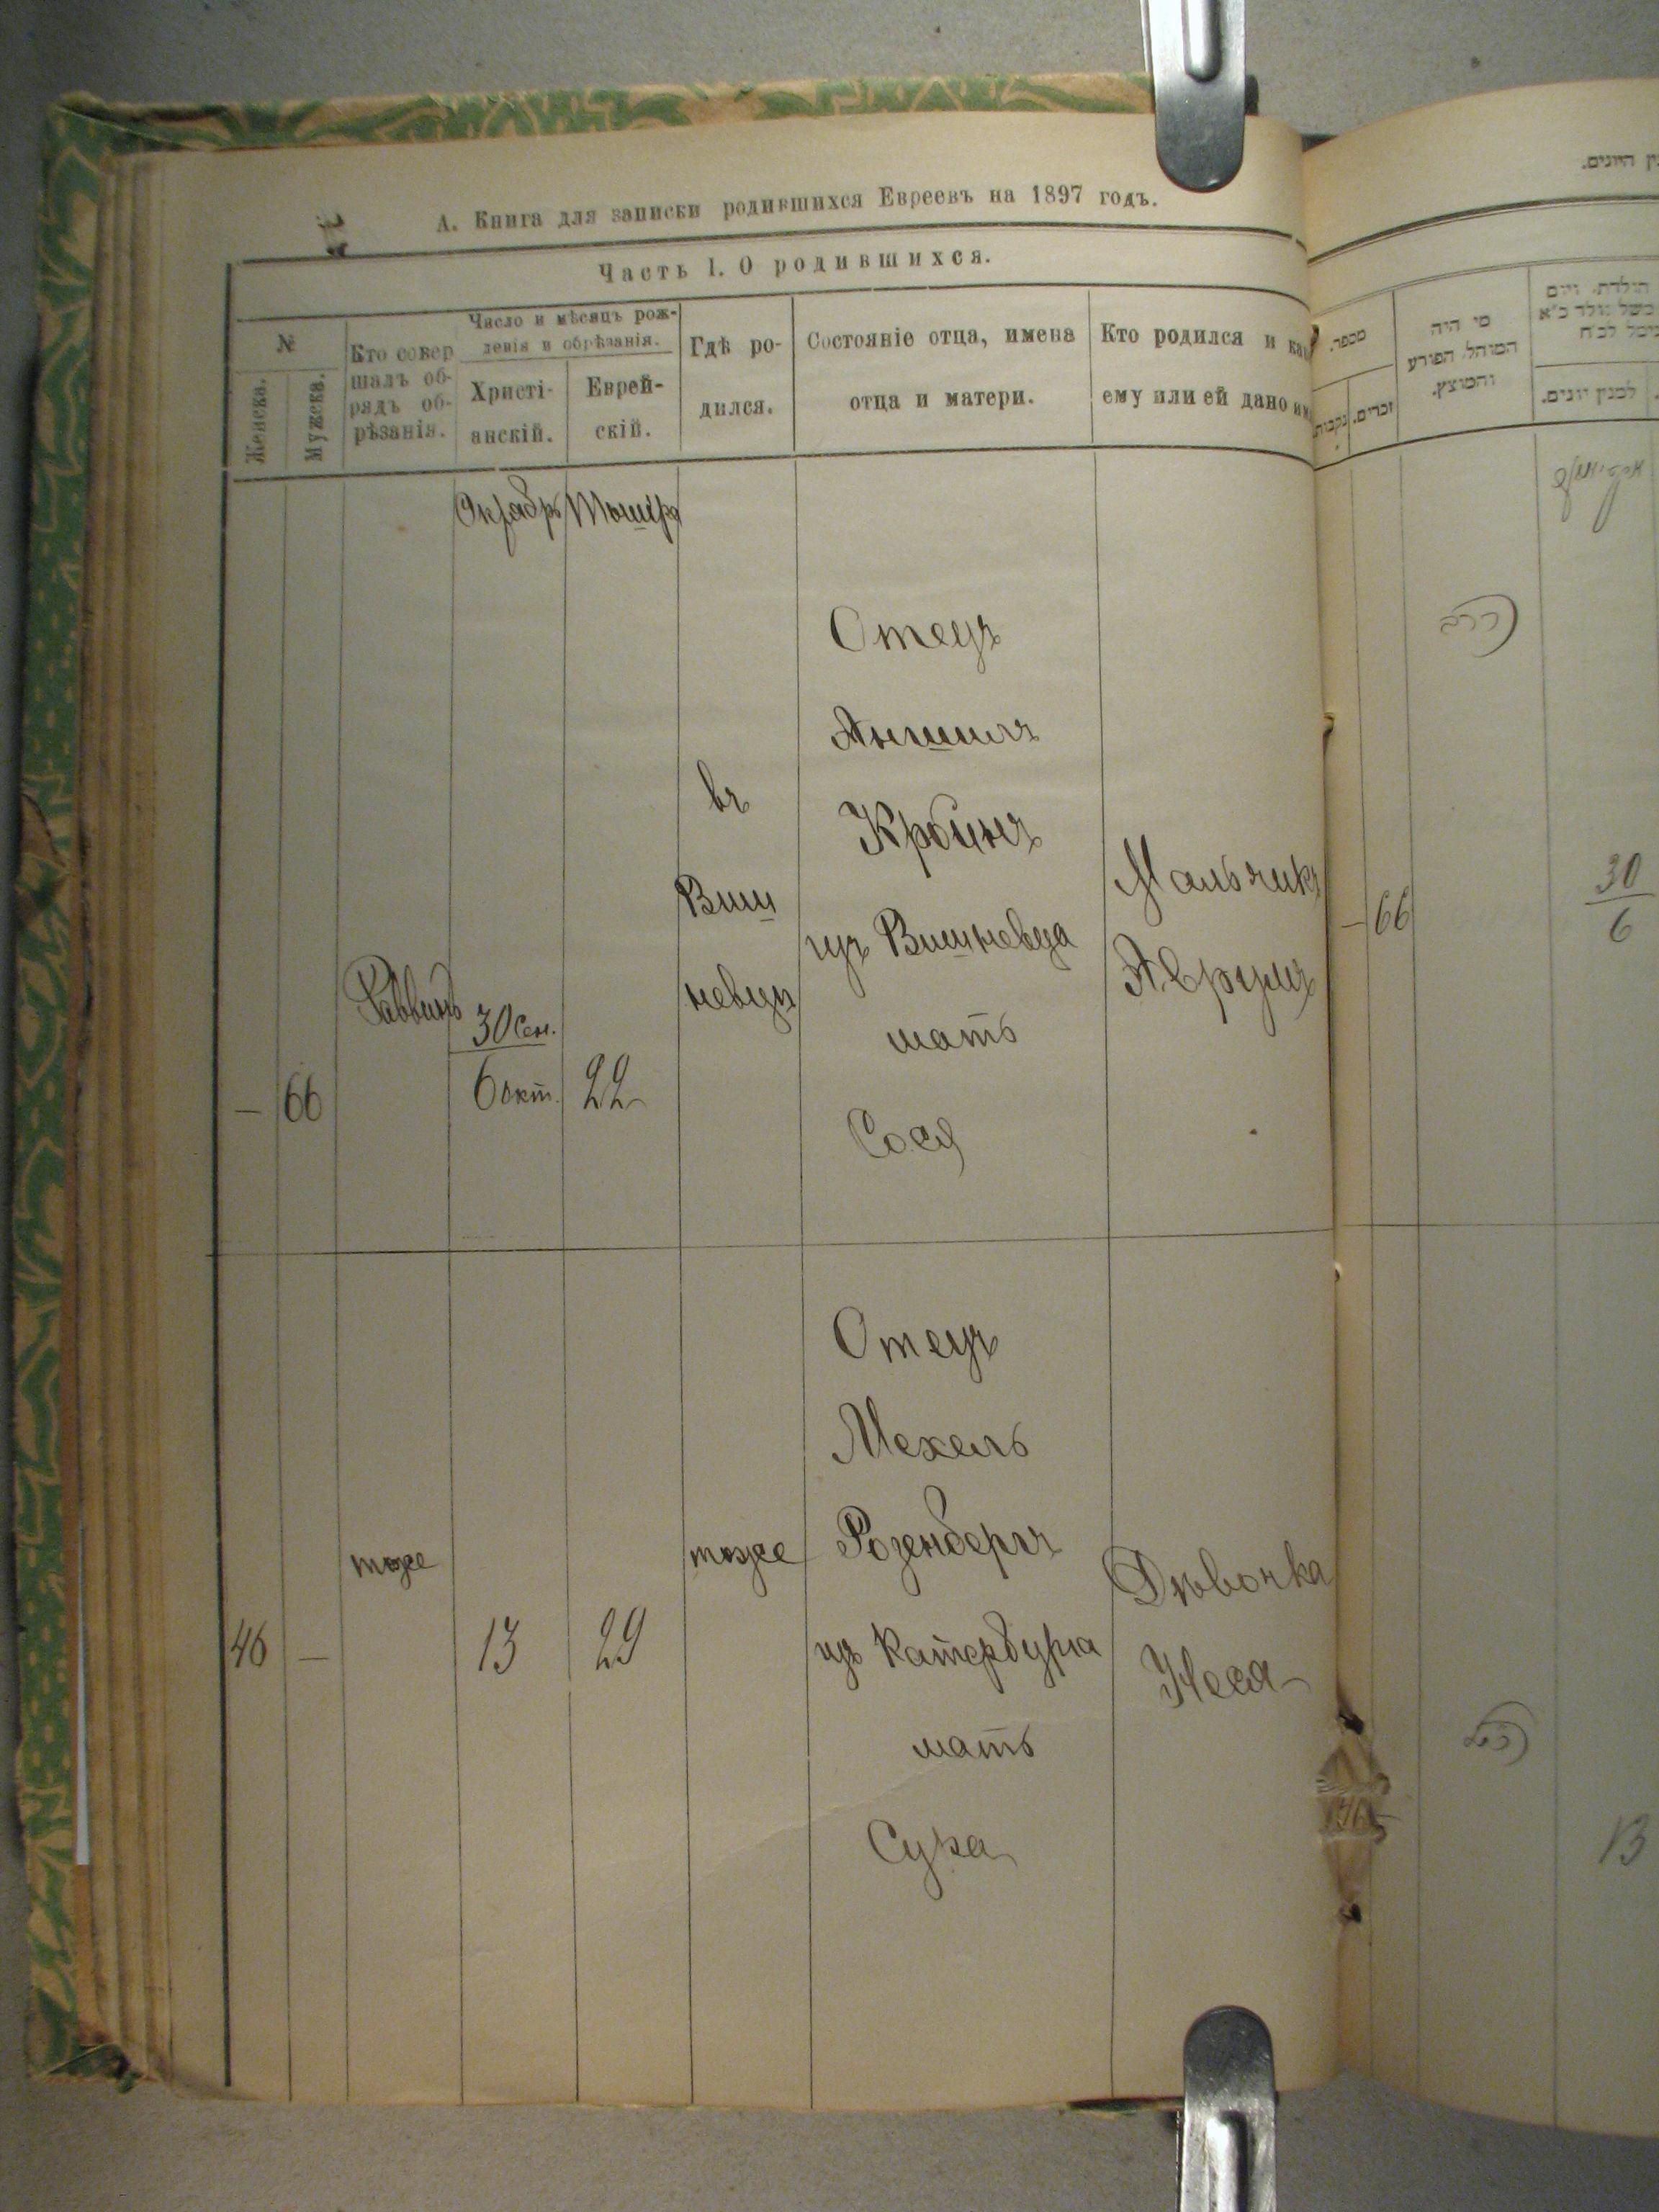 А. Книга для записки родившихся Евреевъ на 1897 годъ.
Часть I. О родившихся.
№
Женска.
Мужеска.
Кто совер
шалъ об-
рядъ об-
рѣзанія.
Число и мѣсяцъ рож-
денія и обрѣзанія.
Христі-
анскій.
Еврей-
скій.
Гдѣ ро-
дился.
Состояніе отца, имена
отца и матери.
Кто родился и как
ему или ей дано им
Октябрь
— 66
Раввинъ
30 Сен.
6 окт.
22
въ
Виш
невцѣ
Отецъ
Аншилъ
Кройнъ
изъ Вишневца
мать
Сося
Мальчикъ
46 —
тоже
13
29
тоже
Отецъ
Мехель
Розенбергъ
изъ Катербурга
мать
Сура
Дѣвочка
Неся
מספר.
נקבות
זכרים.
מי היה
המוהל הפורע
והמוצץ.
למנין יונים.
הרב
— 66
30
6
13